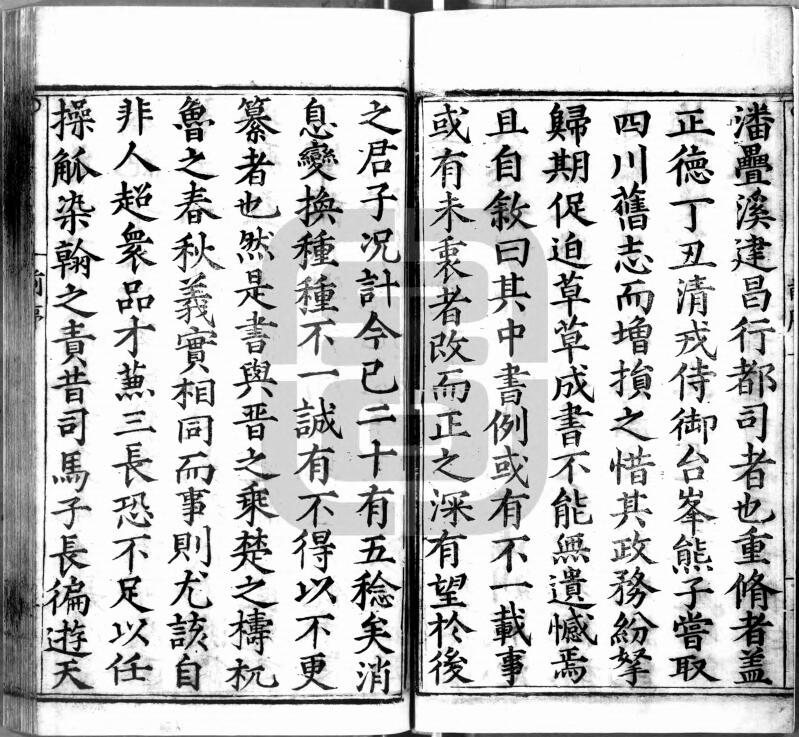 潘疊溪建昌行都司者也重脩者盖
正德丁丑清戎侍御台峯熊子嘗取
四川舊志而增損之惜其政務紛拏
歸期促迫草草成書不能無遺憾焉
且自敘曰其中書例或有不一載事
或有未衷者改而正之深有望於後
之君子况計今已二十有五稔矣消
息變換種種不一誠有不得以不更
纂者也然是書與晋之乘楚之檮杌
魯之春秋義實相同而事則尤該自
非人超衆品才蒹三長恐不足以任
操觚染翰之責昔司馬子長徧遊天